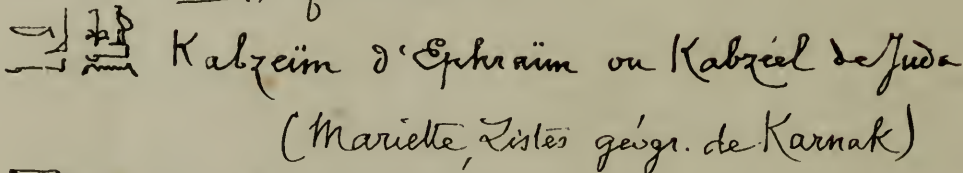 Kabzeïm d'Ephraïm ou Kabzéel de Juda
(Mariette, Listes géogr. de Karnak)